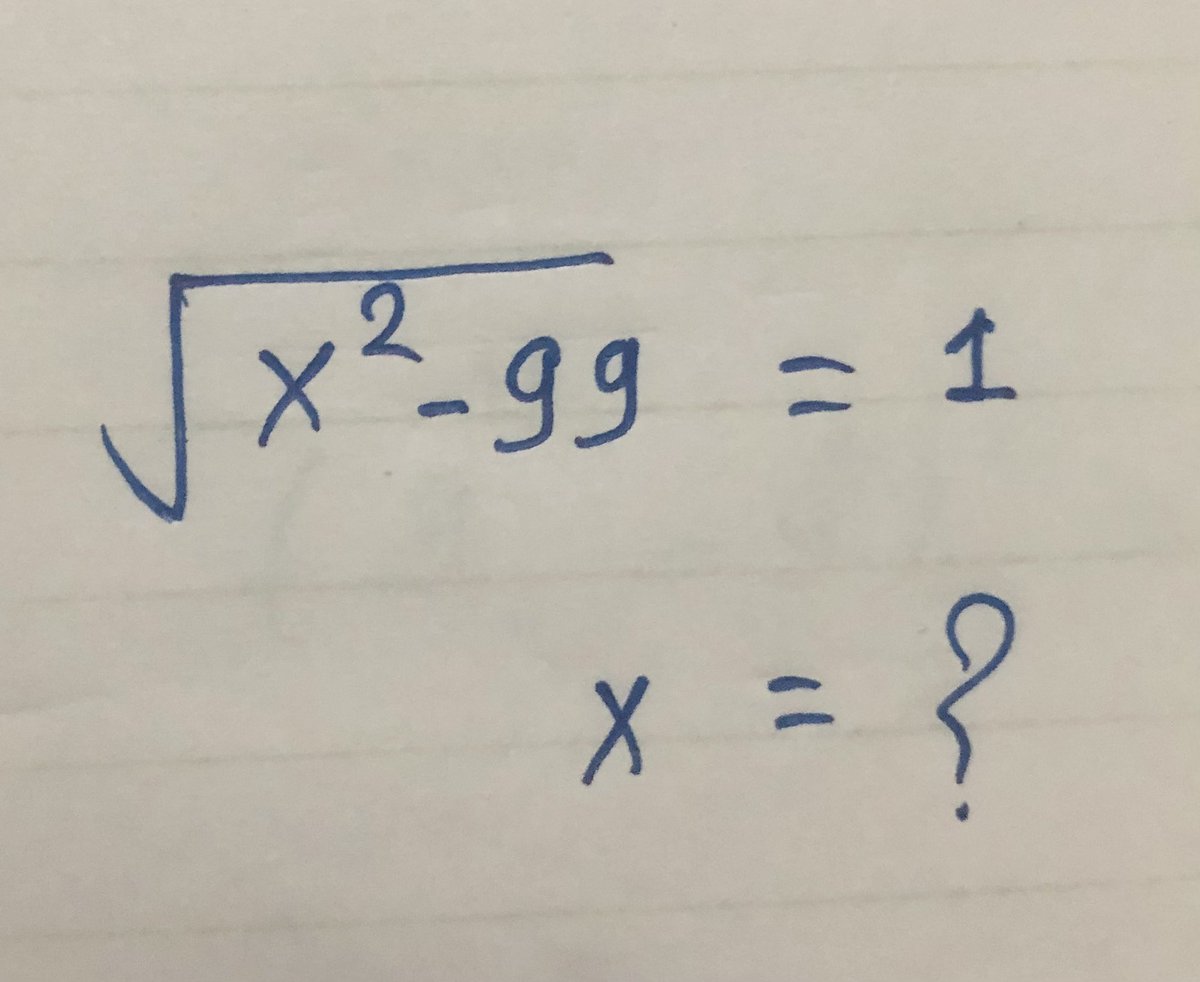 √x²-99 = 1
x = ?